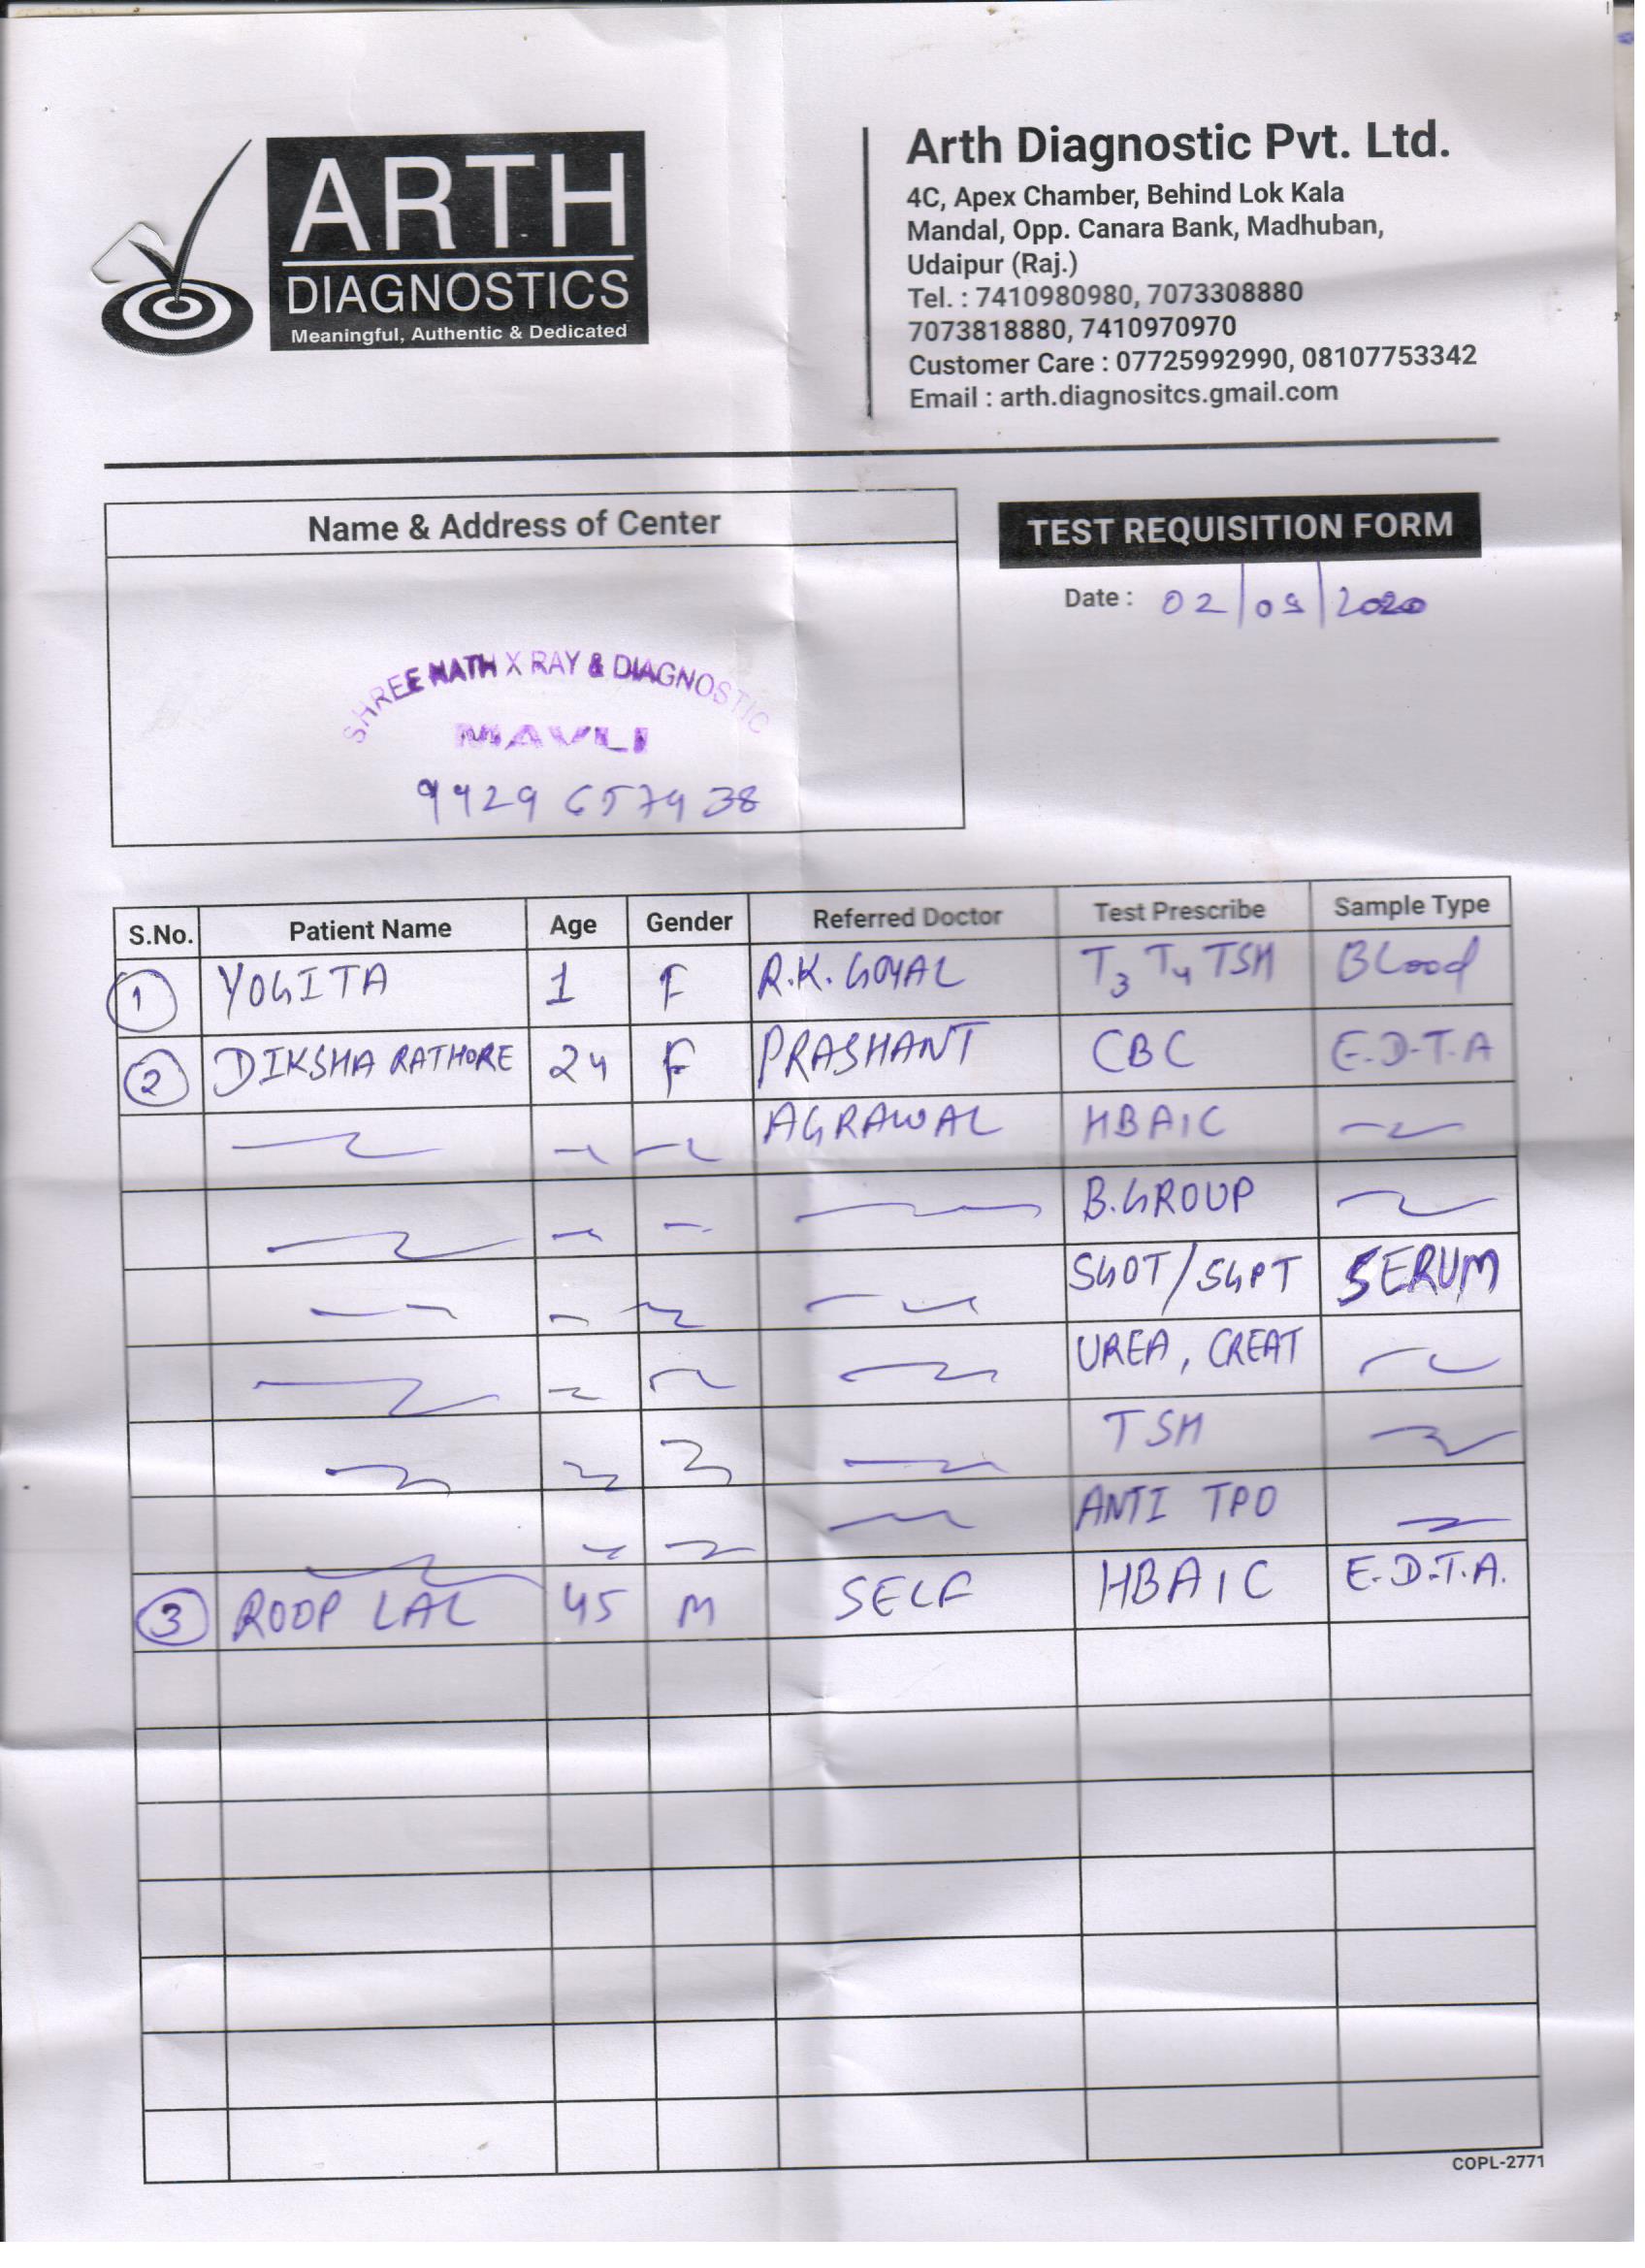 ARTH
DIAGNOSTICS
Meaningful, Authentic & Dedicated
Arth Diagnostic Pvt. Ltd.
4C, Apex Chamber, Behind Lok Kala
Mandal, Opp. Canara Bank, Madhuban,
Udaipur (Raj.)
Tel. : 7410980980, 7073308880
7073818880, 7410970970
Customer Care : 07725992990, 08107753342
Email : arth.diagnositcs.gmail.com
Name & Address of Center
SHREE NATH X RAY & DIAGNOSTIC
MAVLI
TEST REQUISITION FORM
Date : 02/09/2020
S.No. Patient Name Age Gender Referred Doctor Test Prescribe Sample Type
1 YOGITA 1 F R.K. GOYAL T3 T4 TSH Blood
2 DIKSHA RATHORE 24 F PRASHANT CBC E.D.T.A
AGRAWAL HBA1C
B.GROUP
SGOT/SGPT SERUM
UREA, CREAT
TSH
ANTI TPO
3 ROOP LAL 45 M SELF HBA1C E.D.T.A.
COPL-2771